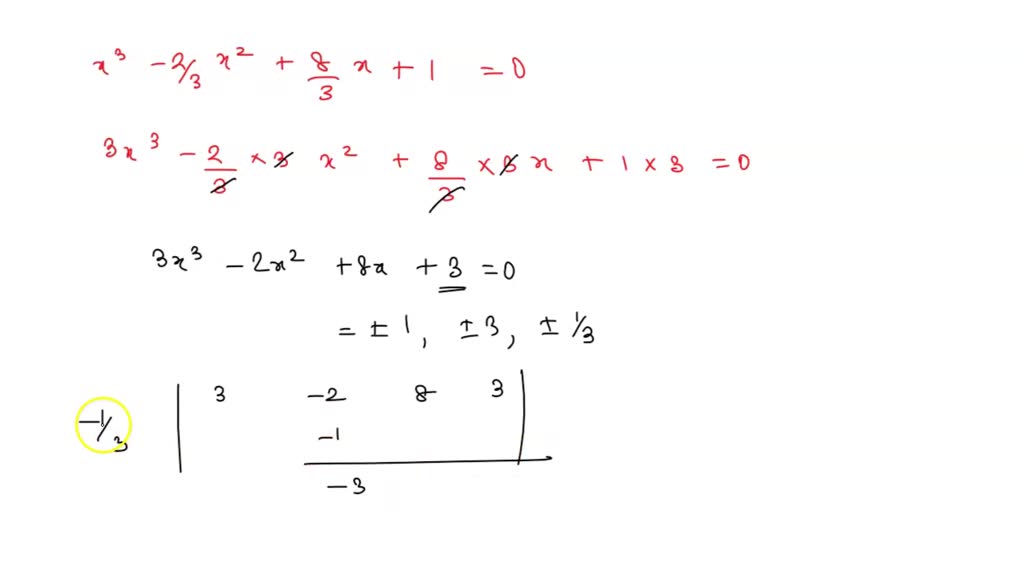 x³ - 2/3 x² + 8/3 x + 1 = 0
3x³ - 2/3 × 3 x² + 8/3 × 3 x + 1 × 3 = 0
3x³ - 2x² + 8x + 3 = 0
= ± 1, ± 3, ± 1/3
-1/3 | 3 -2 8 3 |
-1
-3